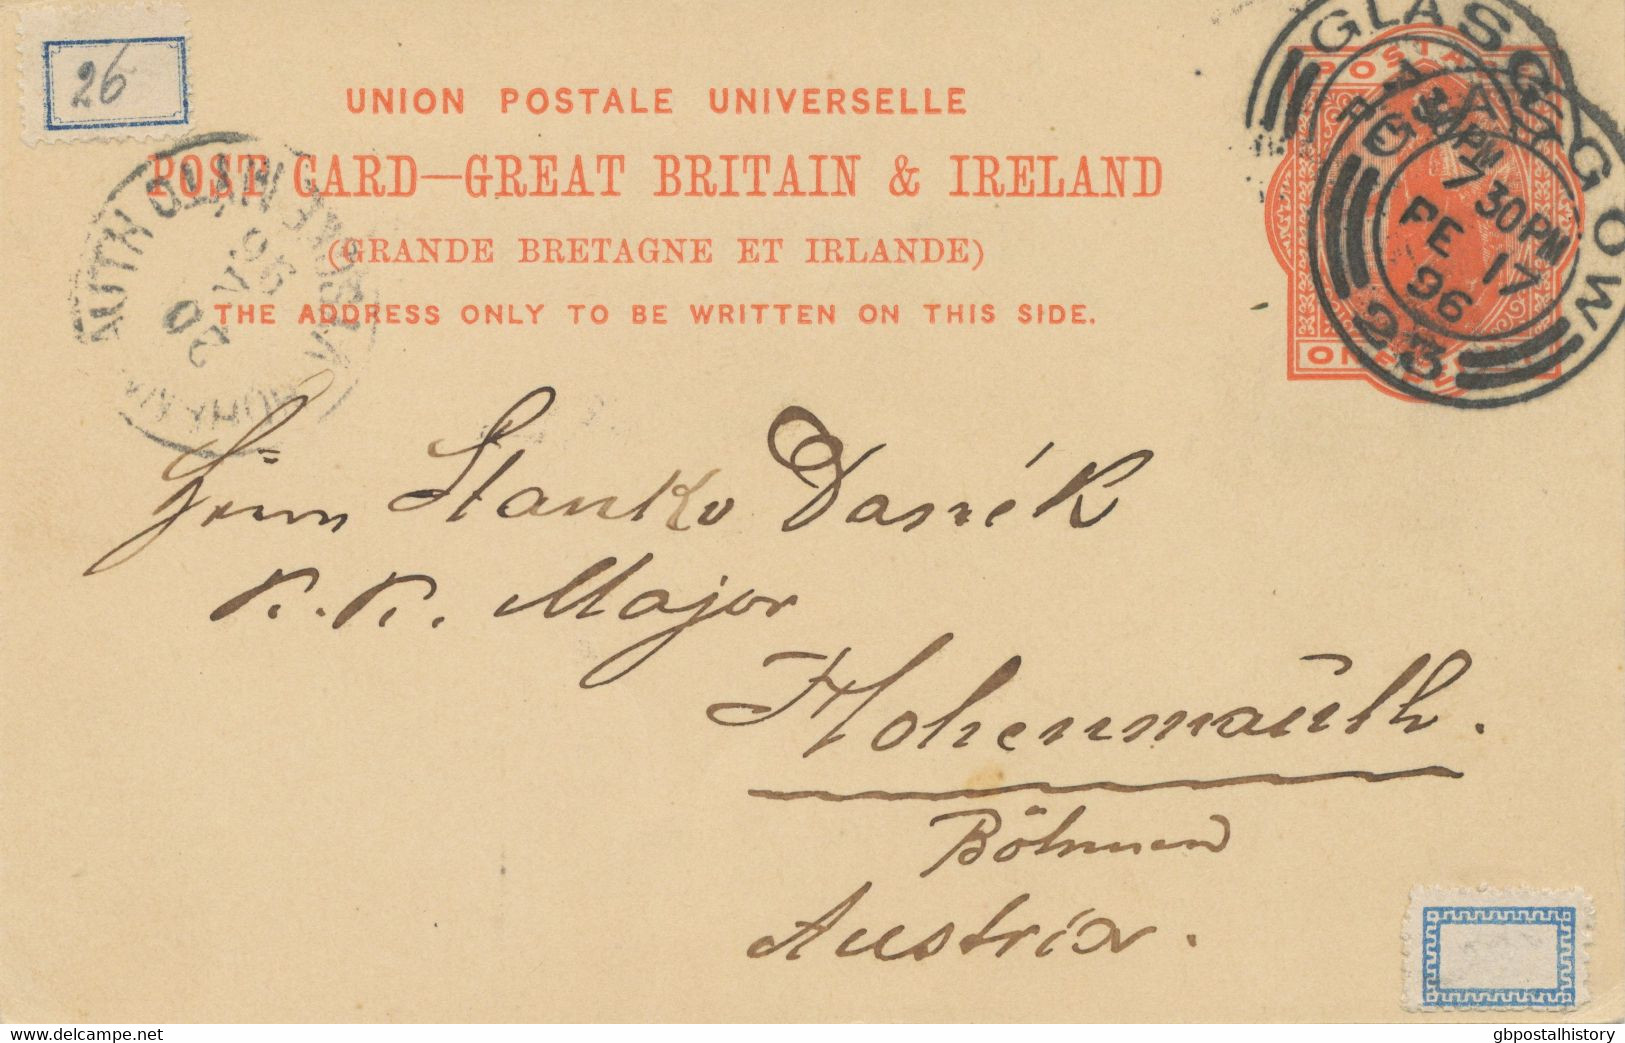 26
UNION POSTALE UNIVERSELLE
POST CARD—GREAT BRITAIN & IRELAND
(GRANDE BRETAGNE ET IRLANDE)
THE ADDRESS ONLY TO BE WRITTEN ON THIS SIDE.
GLASGOW
7 30PM
FE 17
96
23
20
96
Herrn Stanko Danék
K. K. Major
Hohenmauth.
Böhmen
Austria.
© the-visa.com
gbpostalhistory